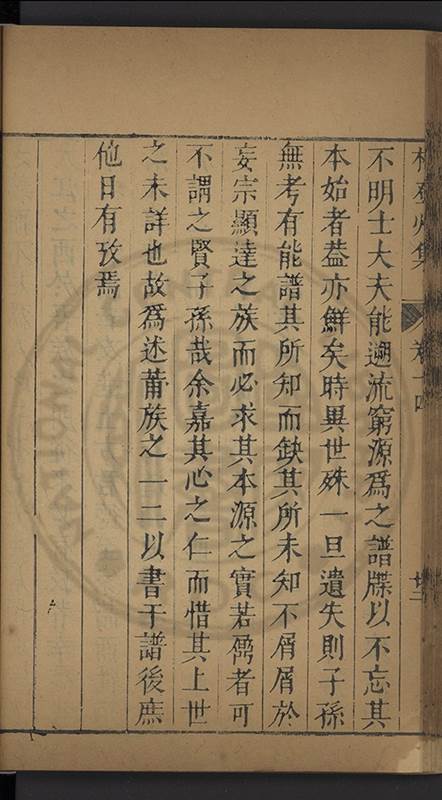 不明士大夫能遡流窮源爲之譜牒以不忘其
本始者葢亦鮮矣時異世殊一旦遺失則子孫
無考有能譜其所知而缺其所未知不屑屑於
妄宗顯達之族而必求其本源之實若儁者可
不謂之賢子孫哉余嘉其心之仁而惜其上世
之未詳也故爲述莆族之一二以書于譜後庶
他日有攷焉
卷十四